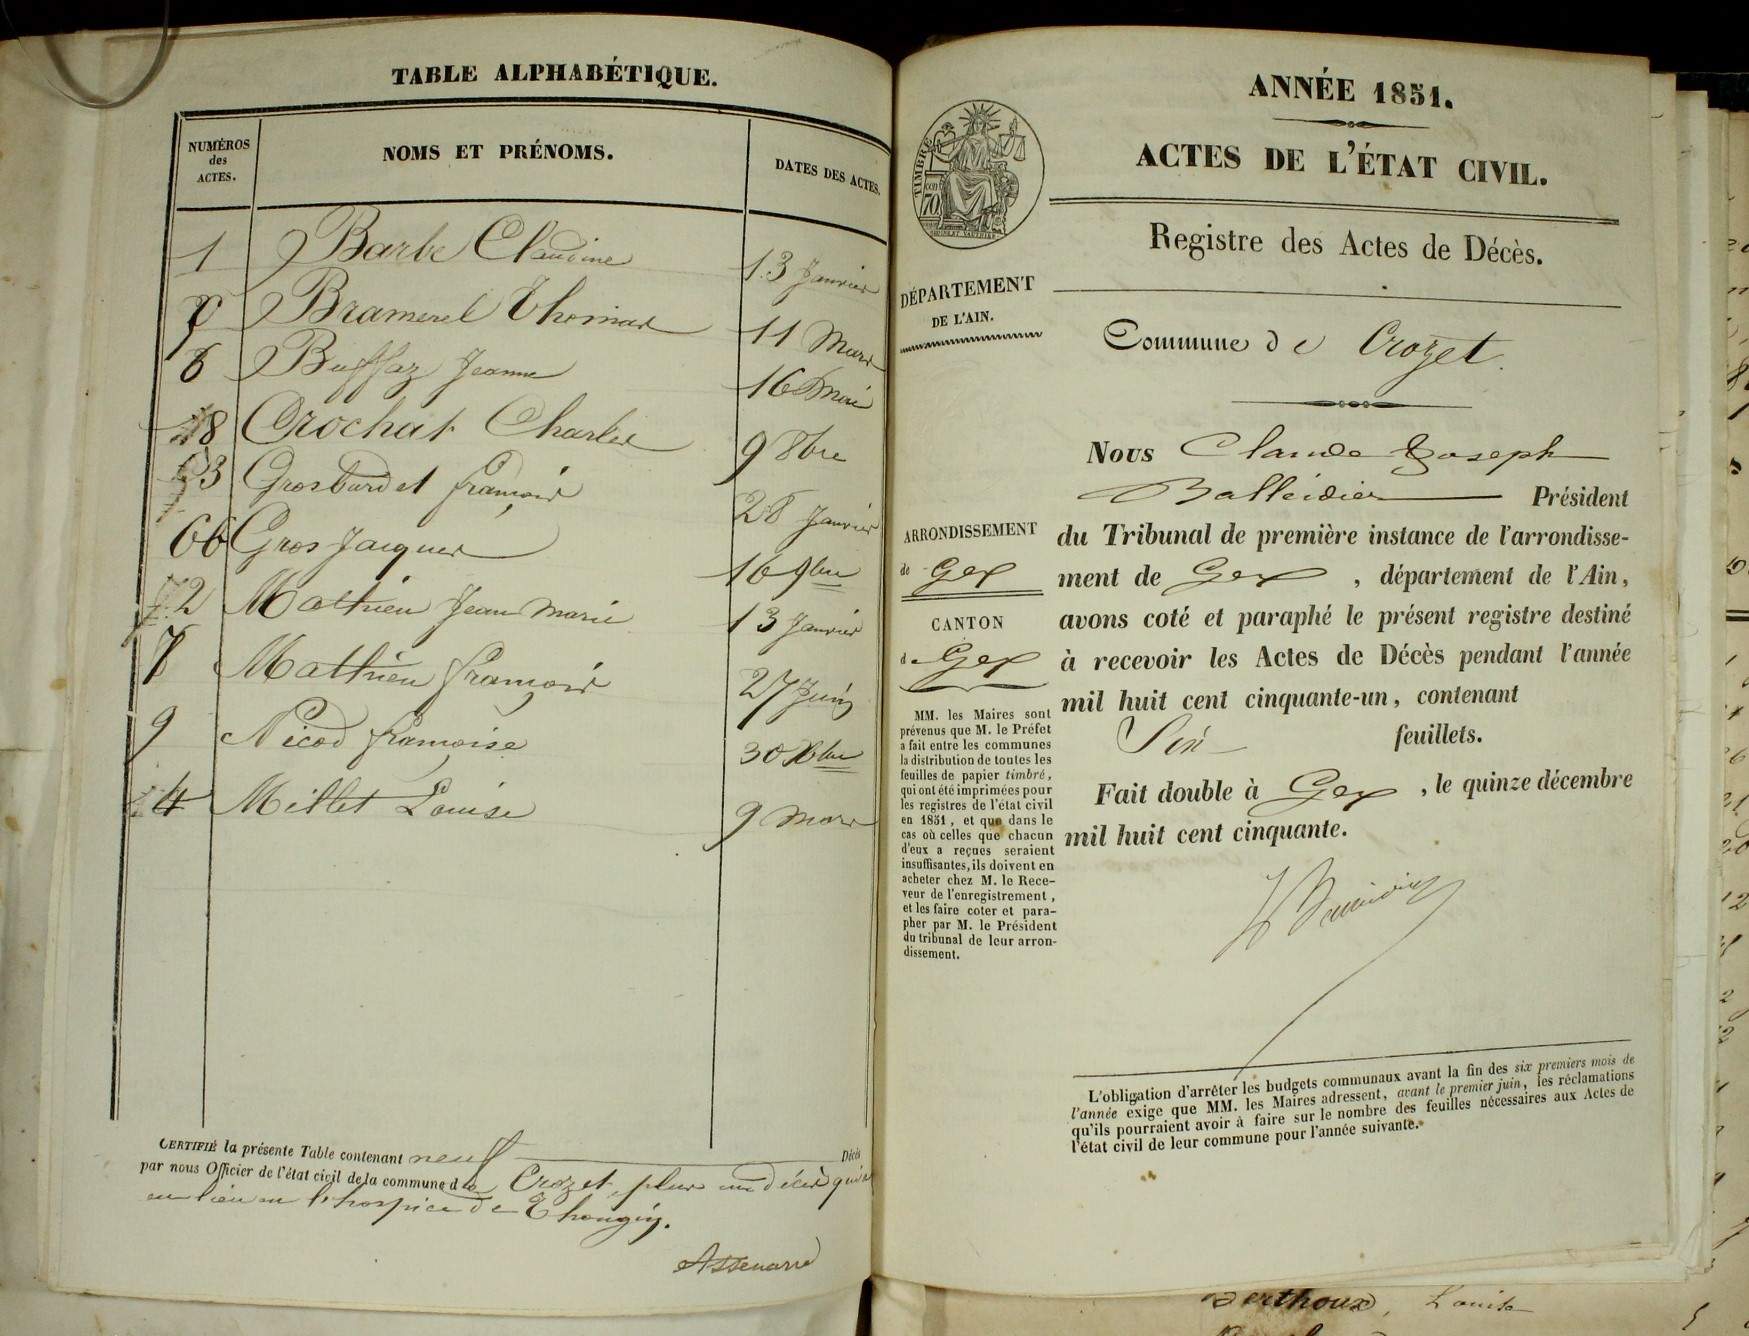 TABLE ALPHABÉTIQUE.
NUMÉROS des ACTES.
NOMS ET PRÉNOMS.
DATES DES ACTES.
1 Barbe Claudine 13 Janvier
Bramerel Thomas 11 Mars
6 Buffaz Jeanne 16
8 Crochat Charles 9 8bre
3 Grosburdet françois 28 Janvier
Gros Jacques 16 9bre
2 Mathieu Jean Marie 13 Janvier
7 Mathieu françois 27 Juin
9 Nicod françoise 30 Xbre
4 Millet Louise 9 Mars
CERTIFIÉ la présente Table contenant neuf Décès
par nous Officier de l'état civil de la commune de Crozet, plus un décès qui a
eu lieu en l'hospice de
ANNÉE 1851.
ACTES DE L'ÉTAT CIVIL.
Registre des Actes de Décès.
TIMBRE
70
DÉPARTEMENT
DE L'AIN.
Commune de Crozet.
Nous Claude Joseph
Balleidier Président
du Tribunal de première instance de l'arrondisse-
ment de Gex, département de l'Ain,
avons coté et paraphé le présent registre destiné
à recevoir les Actes de Décès pendant l'année
mil huit cent cinquante-un, contenant
Six feuillets.
Fait double à Gex, le quinze décembre
mil huit cent cinquante.
ARRONDISSEMENT
de Gex
CANTON
d Gex
MM. les Maires sont
prévenus que M. le Préfet
a fait entre les communes
la distribution de toutes les
feuilles de papier timbré,
qui ont été imprimées pour
les registres de l'état civil
en 1851, et que dans le
cas où celles que chacun
d'eux a reçues seraient
insuffisantes, ils doivent en
acheter chez M. le Rece-
veur de l'enregistrement,
et les faire coter et para-
pher par M. le Président
du tribunal de leur arron-
dissement.
L'obligation d'arrêter les budgets communaux avant la fin des six premiers mois de
l'année exige que MM. les Maires adressent, avant le premier juin, les réclamations
qu'ils pourraient avoir à faire sur le nombre des feuilles nécessaires aux Actes de
l'état civil de leur commune pour l'année suivante.
Berthoux, Louise